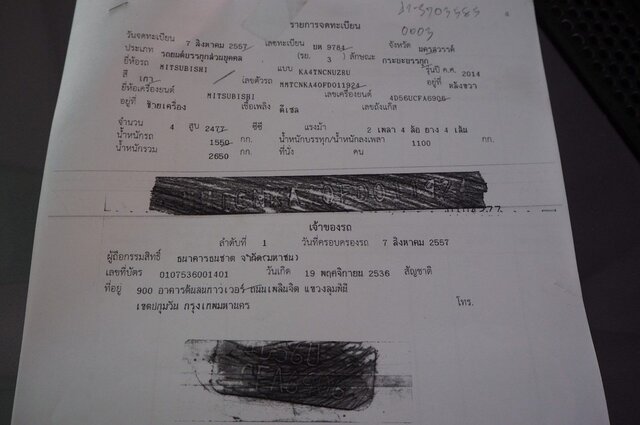 รายการจดทะเบียน
วันจดทะเบียน 7 สิงหาคม 2557 เลขทะเบียน ผท 9784 จังหวัด นครสวรรค์
ประเภท รถยนต์บรรทุกส่วนบุคคล (รย. 3 ) ลักษณะ กระบะบรรทุก
ยี่ห้อรถ MITSUBISHI แบบ KA4TNCNUZRU รุ่นปี ค.ศ. 2014
สี เทา เลขตัวรถ MMTCNKA40FD011924 อยู่ที่ หลังขวา
ยี่ห้อเครื่องยนต์ MITSUBISHI เลขเครื่องยนต์ 4D56UCFA6906
อยู่ที่ ซ้ายเครื่อง เชื้อเพลิง ดีเซล เลขถังแก๊ส
จำนวน 4 สูบ 2477 ซีซี แรงม้า 2 เพลา 4 ล้อ ยาง 4 เส้น
น้ำหนักรถ 1550 กก. น้ำหนักบรรทุก/น้ำหนักลงเพลา 1100 กก.
น้ำหนักรวม 2650 กก. ที่นั่ง คน
เจ้าของรถ
ลำดับที่ 1 วันที่ครอบครองรถ 7 สิงหาคม 2557
ผู้ถือกรรมสิทธิ์ ธนาคารธนชาต จำกัด(มหาชน)
เลขที่บัตร 0107536001401 วันเกิด 19 พฤศจิกายน 2536 สัญชาติ
ที่อยู่ 900 อาคารต้นสนทาวเวอร์ ถนนเพลินจิต แขวงลุมพินี
เขตปทุมวัน กรุงเทพมหานคร โทร.